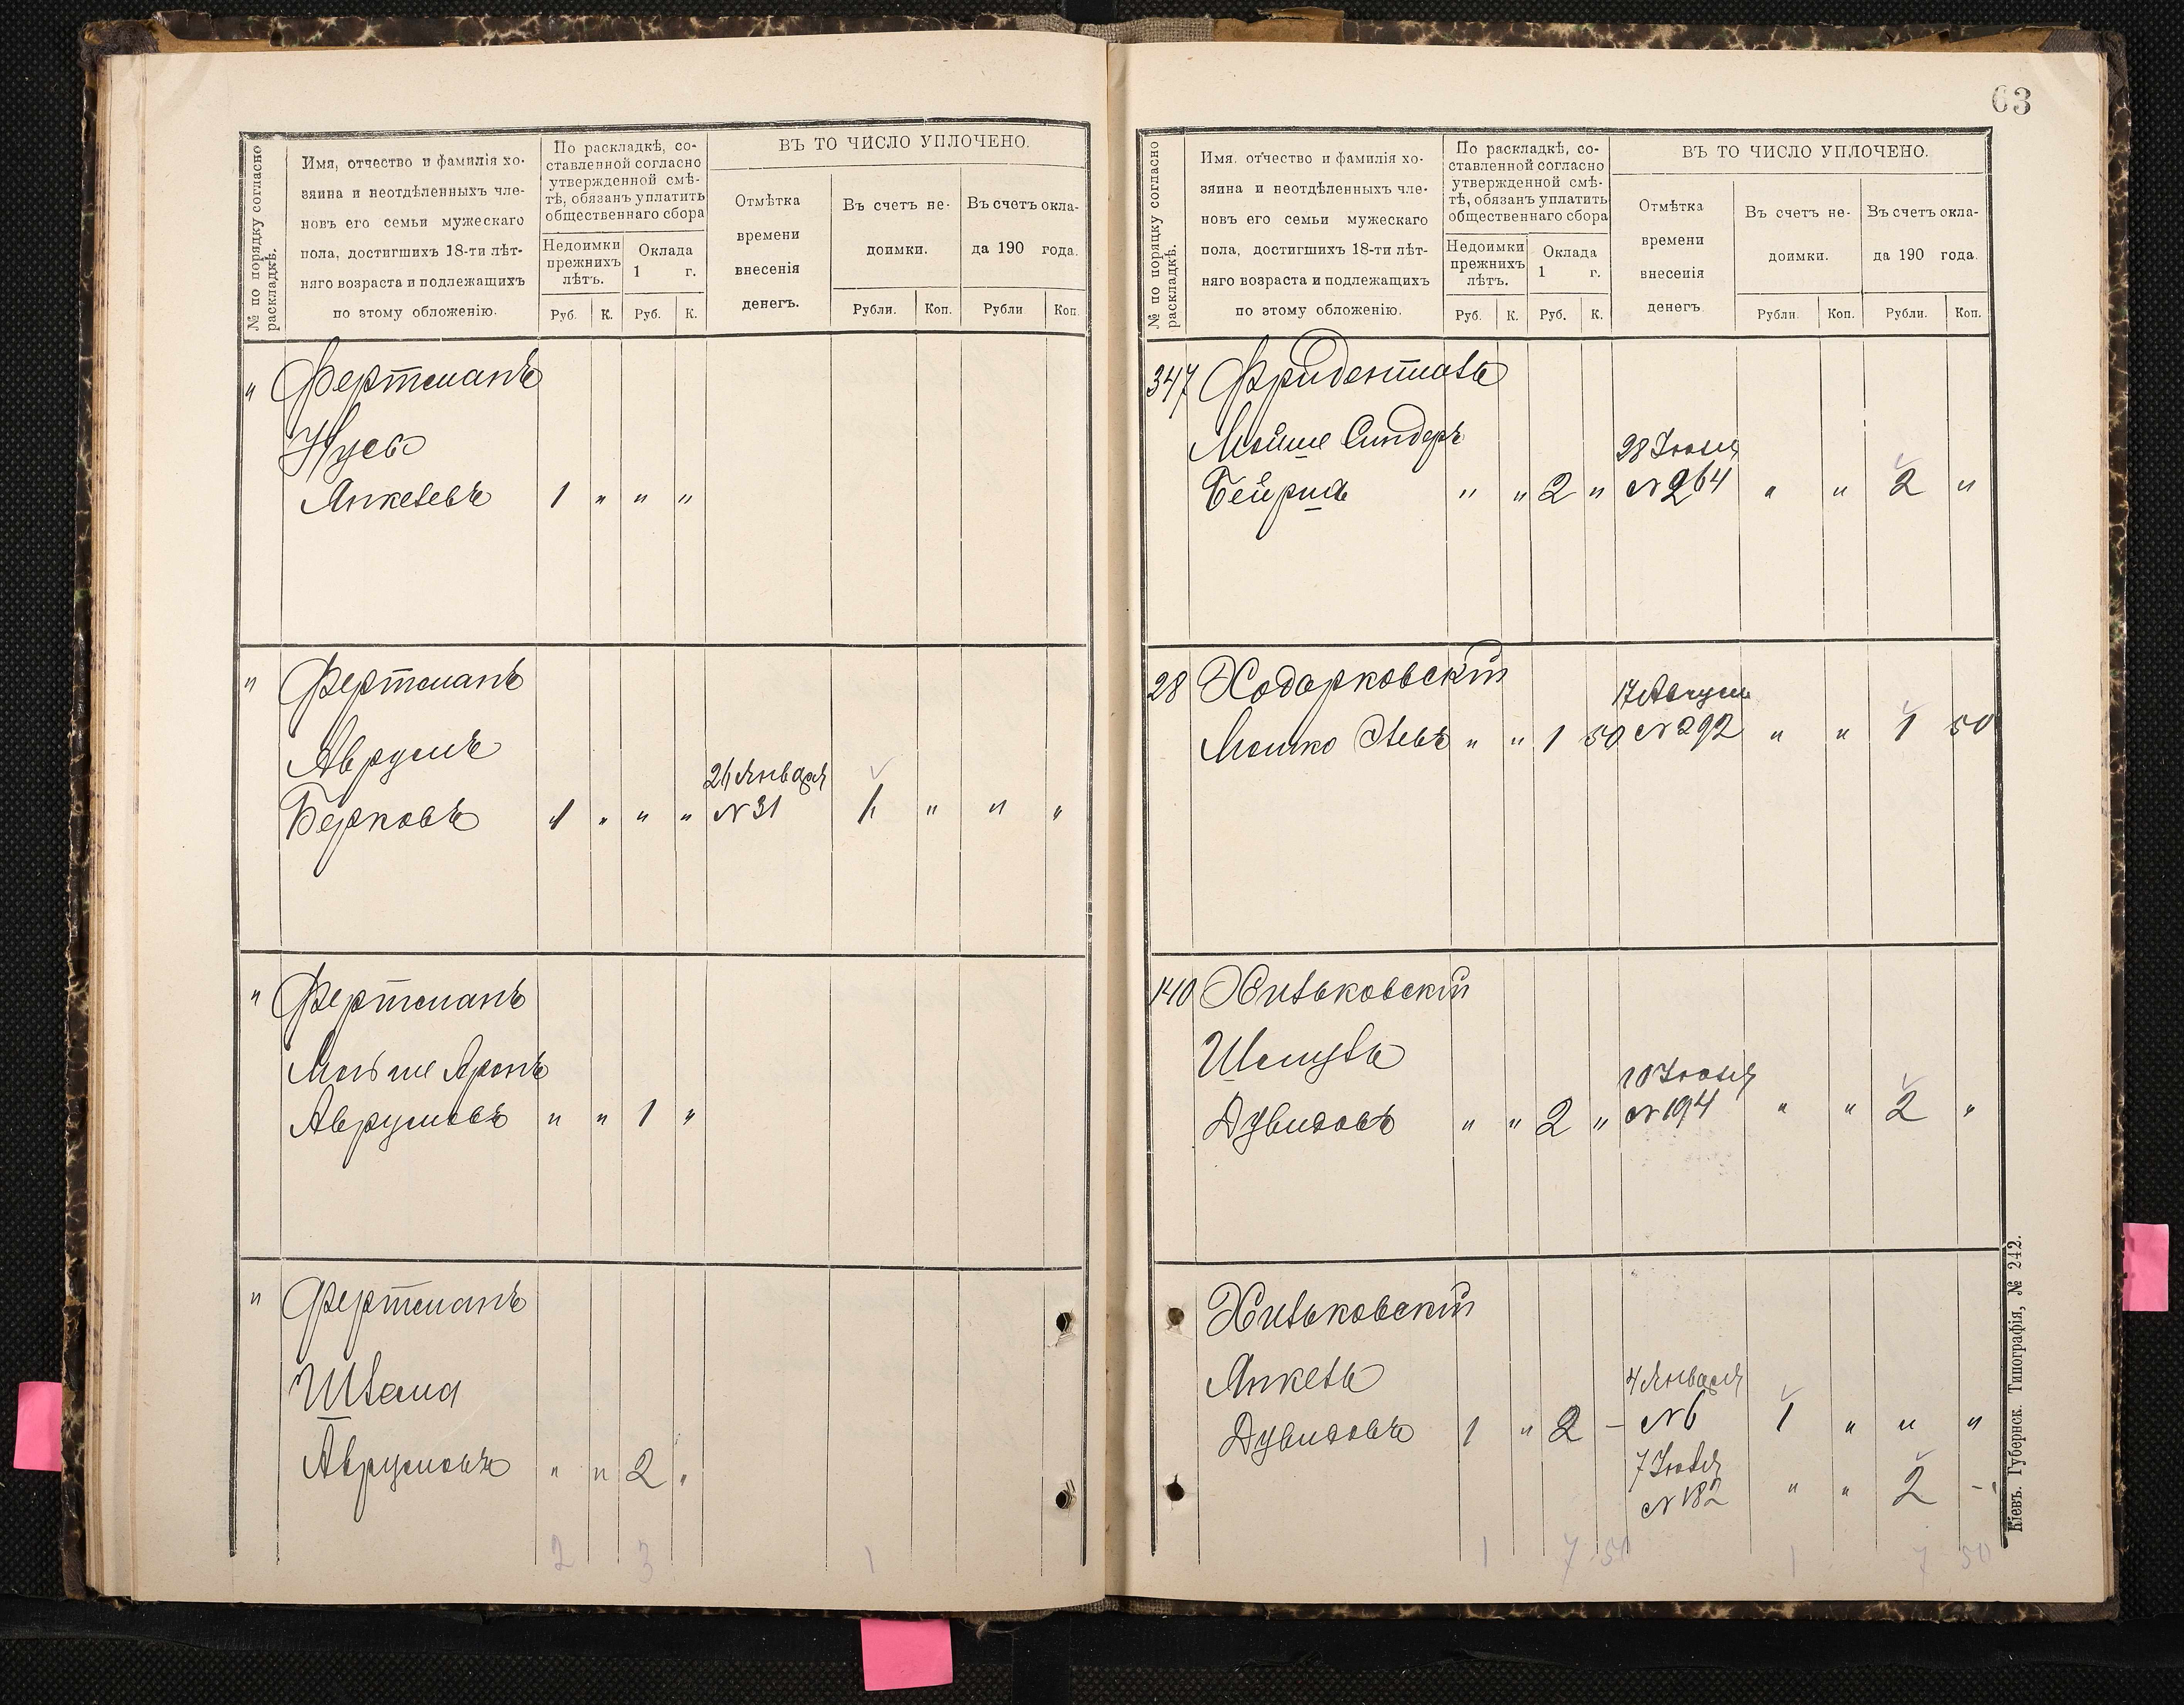 № по порядку согласно
раскладкѣ.
Имя, отчество и фамилія хо-
зяина и неотдѣленныхъ чле-
новъ его семьи мужескаго
пола, достигшихъ 18-ти лѣт-
няго возраста и подлежащихъ
по этому обложенію.
По раскладкѣ, со-
ставленной согласно
утвержденной смѣ-
тѣ, обязанъ уплатить
общественнаго сбора
Недоимки
прежнихъ
лѣтъ.
Оклада
1 г.
Руб. К. Руб. К.
ВЪ ТО ЧИСЛО УПЛОЧЕНО.
Отмѣтка
времени
внесенія
денегъ.
Въ счетъ не-
доимки.
Въ счетъ окла-
да 190 года.
Рубли. Коп. Рубли Коп.
" Фертманъ
Нусь
Янкелевъ 1 " " "
" Фертманъ
Аврумъ
26 Января
Берковъ 1 " " " № 31 1 " " "
" Фертманъ
Мойше Аронъ
Аврумовъ " " 1 "
" Фертманъ
Шлема
Аврумовъ " " 2 "
2 3 1
63
№ по порядку согласно
раскладкѣ.
Имя, отчество и фамилія хо-
зяина и неотдѣленныхъ чле-
новъ его семьи мужескаго
пола, достигшихъ 18-ти лѣт-
няго возраста и подлежащихъ
по этому обложенію.
По раскладкѣ, со-
ставленной согласно
утвержденной смѣ-
тѣ, обязанъ уплатить
общественнаго сбора
Недоимки
прежнихъ
лѣтъ.
Оклада
1 г.
Руб. К. Руб. К.
ВЪ ТО ЧИСЛО УПЛОЧЕНО.
Отмѣтка
времени
внесенія
денегъ.
Въ счетъ не-
доимки.
Въ счетъ окла-
да 190 года.
Рубли. Коп. Рубли. Коп.
347 Фриденталь
Мойше Сендеръ
28 Іюля
" " 2 " № 264 " " 2 "
28 Ходорковскій
17 Август
Мошко Левъ " " 1 50 № 292 " " 1 50
140 Хильковскій
Шмуль
10 Іюля
Дувидовъ " " 2 " № 194 " " 2 "
Хильковскій
Янкель
4 Января
Дувидовъ 1 " 2 - № 6 1 " " "
7 Іюля
№ 182 " " 2 -
1 7 50 1 7 50
Кіевъ. Губернск. Типографія, № 242.